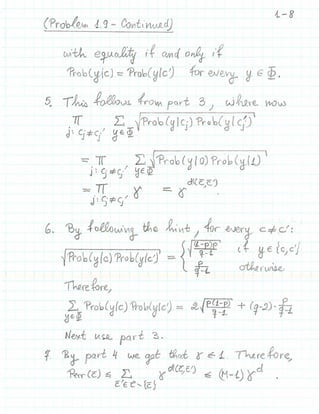 1-8
(Problem 1.9 - Continued)
with equality if and only if
Prob(y|c) = Prob(y|c') for every y ∈ Φ.
5. This follows from part 3, where now
∏_{j: c_j≠c_j'} Σ_{y∈Φ} √(Prob(y|c_j) Prob(y|c_j'))
= ∏_{j: c_j≠c_j'} Σ_{y∈Φ} √(Prob(y|0) Prob(y|1))
= ∏_{j: c_j≠c_j'} γ = γ^{d(c,c')}.
6. By following the hint, for every c≠c':
√(Prob(y|c) Prob(y|c')) = { √((1-p)p/(q-1)) if y ∈ {c,c'}
p/(q-1) otherwise
Therefore,
Σ_{y∈Φ} √(Prob(y|c) Prob(y|c')) = 2√(p(1-p)/(q-1)) + (q-2)·p/(q-1)
Next use part 3.
7. By part 4 we get that γ ≤ 1. Therefore,
Perr(c) ≤ Σ_{c'∈C\{c}} γ^{d(c,c')} ≤ (M-1)γ^d.